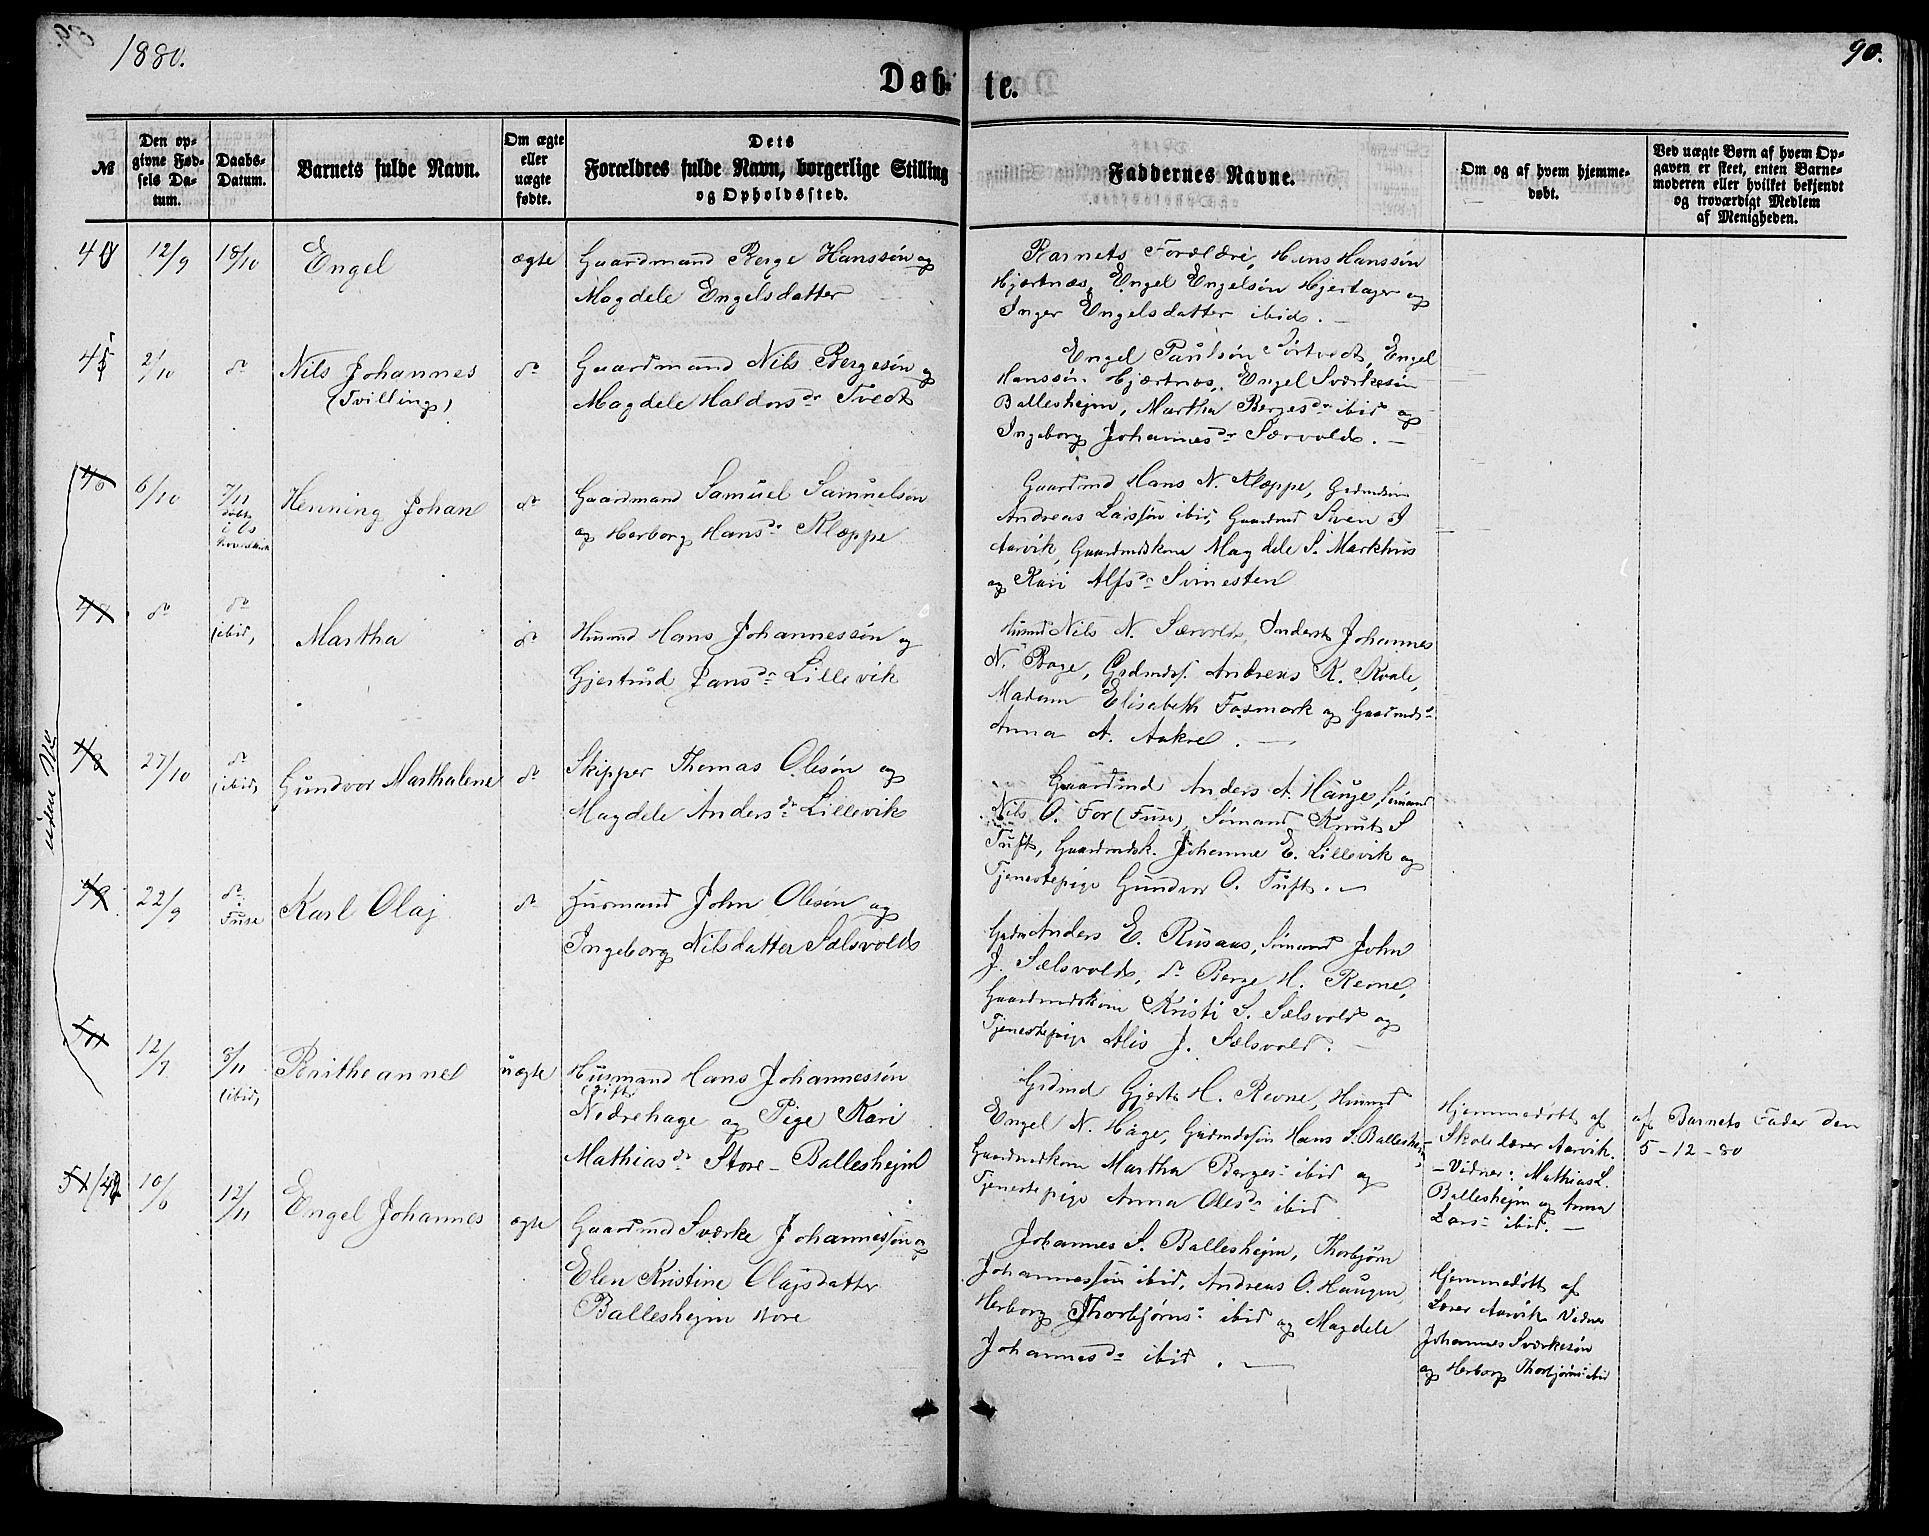 1880.
90.
Døbte.
№
Den opgivne Fødsels Datum.
Daabs-Datum.
Barnets fulde Navn.
Om ægte eller uægte fødte.
Dets Forældres fulde Navn, borgerlige Stilling og Opholdssted.
Faddernes Navne.
Om og af hvem hjemmedøbt.
Ved uægte Børn af hvem Opgaven er skeet, enten Barnemoderen eller hvilket bekjendt og troværdigt Medlem af Menigheden.
40
12/9
18/10
Engel
ægte
Gaardmand Berge Hanssøn og
Magdele Engelsdatter
Barnets Forældre, Hans Hanssøn
Hjertnæs, Engel Engelsøn Hjertager og
Inger Engelsdatter ibid. —
41
2/10
do
Nils Johannes
(Tvilling)
do
Gaardmand Nils Bergesøn og
Magdele Haldorsdr Tvedt
Engel Paulsøn Tørtvedt, Engel
Hanssøn Hjærtnæs, Engel Sværkesøn
Ballesheim, Martha Bergesdr ibid og
Ingeborg Johannesdr Særvold. —
46
6/10
7/11
døbt
i
Henning Johan
do
Gaardmand Samuel Samuelsøn
og Herborg Hansdr Kleppe
Gaardmd Hans N. Kleppe, Gdmdsøn
Andreas Larssøn ibid, Gaardmd Sven J
Aarvik, Gaardmdskone Magdele S. Markhus
og Kari Alfsdr Svinesten
47
do
do
(ibid)
Martha
do
Husmd Hans Johannessøn og
Gjertrud Jansdr Lillevik
Husmd Nils N. Særvold, Inderst Johannes
N. Boge, Grdmds. Andreas K. Kvale,
Madam Elisabeth Fosmark og Gaardmds
Anna A. Aakre. —
uden No
48
27/10
do
(ibid)
Gundvor Marthalene
do
Skipper Thomas Olesøn og
Magdele Andersdr Lillevik
Gaardmd Anders A. Hauge, Sømand
Nils O. For (Fuse), Sømand Knut S
Tuft, Gaardmdsk. Johanne E. Lillevik og
Tjenestepige Gundvor O. Tuft. —
49
22/9
do
Fuse
Karl Olaj
do
Husmand John Olesøn og
Ingeborg Nilsdatter Sælsvold
Gdm Anders E. Rusaas, Sømand John
J. Sælsvold, do Berge H. Revne,
Gaardmdskone Kristi S. Sælsvold og
Tjenestepige Alis J. Sælsvold. —
50
12/9
8/11
(ibid)
Beritheanne
uægte
Husmand Hans Johannessøn
(gift)
Nedrehage og Pige Kari
Mathiasdr Store-Ballesheim
Grdmd Gjert H. Revne, Husmd
Engel N. Hage, Gaardmdssøn Hans S. Ballesheim,
Gaardmdkone Martha Bergesdr ibid og
Tjenestepige Anna Olesdr ibid
Hjemmedøbt af
Skolelærer Aarvik.
— Vidner: Mathias L.
Ballesheim og Anna
Larsdr ibid. —
af Barnets Fader den
5-12-80
51/42
10/6
12/11
Engel Johannes
ægte
Gaardmd Sværke Johannessøn og
Elen Kristine Olajsdatter
Ballesheim store
Johannes S. Ballesheim, Thorbjørn
Johannessøn ibid, Andreas O. Haugen,
Herborg Thorbjørnsdr ibid og Magdele
Johannesdr ibid. —
Hjemmedøbt af
Lærer Aarvik Vidner
Johannes Sværkesøn
og Herborg Thorbjørnsdr ibid